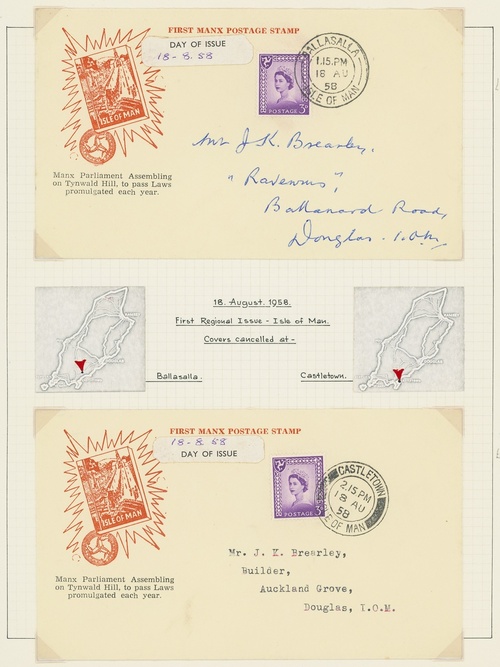 FIRST MANX POSTAGE STAMP
DAY OF ISSUE
18-8.58
BALLASALLA
1.15.PM
18 AU
58
ISLE OF MAN
POSTAGE 3D
ISLE OF MAN
Mr J.K. Brearley,
"Ravenrus",
Ballanard Road,
Douglas. I.O.M.
Manx Parliament Assembling
on Tynwald Hill, to pass Laws
promulgated each year.
18. August. 1958.
First Regional Issue - Isle of Man.
Covers cancelled at -
Ballasalla.
Castletown.
FIRST MANX POSTAGE STAMP
18-8.58
DAY OF ISSUE
CASTLETOWN
2.15 PM
18 AU
58
ISLE OF MAN
POSTAGE 3D
ISLE OF MAN
Mr. J. K. Brearley,
Builder,
Auckland Grove,
Douglas, I.O.M.
Manx Parliament Assembling
on Tynwald Hill, to pass Laws
promulgated each year.